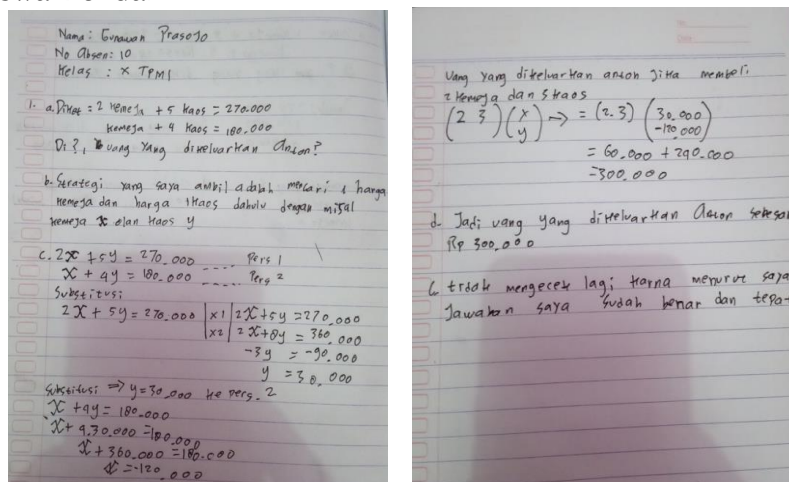 Nama : Gunawan Prasojo
No Absen : 10
Kelas : X TPM1
1. a. Diket = 2 kemeja + 5 kaos = 270.000
kemeja + 4 kaos = 180.000
Di?, uang yang dikeluarkan Anton?
b. Strategi yang saya ambil adalah mencari 1 harga
kemeja dan harga 1 kaos dahulu dengan misal
kemeja x dan kaos y
c. 2x + 5y = 270.000 .... Pers 1
x + 4y = 180.000 .... Pers 2
Substitusi
2x + 5y = 270.000 | x1 | 2x + 5y = 270.000
| x2 | 2x + 8y = 360.000
-3y = -90.000
y = 30.000
Substitusi => y = 30.000 ke Pers. 2
x + 4y = 180.000
x + 4.30.000 = 180.000
x + 360.000 = 180.000
x = -120.000
Uang yang dikeluarkan anton Jika membeli
2 kemeja dan 3 kaos
(2 3) (x y) -> = (2.3) (30.000 -120.000)
= 60.000 + 240.000
= 300.000
d. Jadi uang yang dikeluarkan Anton sebesar
Rp 300.000
tidak mengecek lagi karna menurut saya
Jawaban saya sudah benar dan tepat